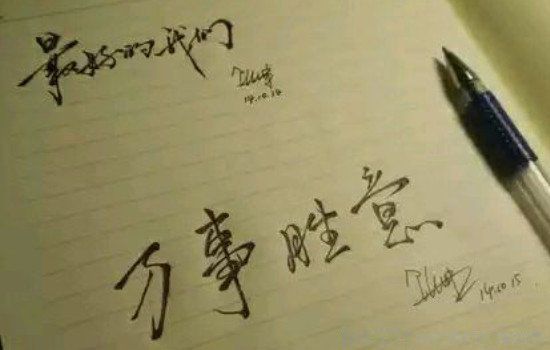 最好的我们
14.10.14
万事胜意
14.10.15